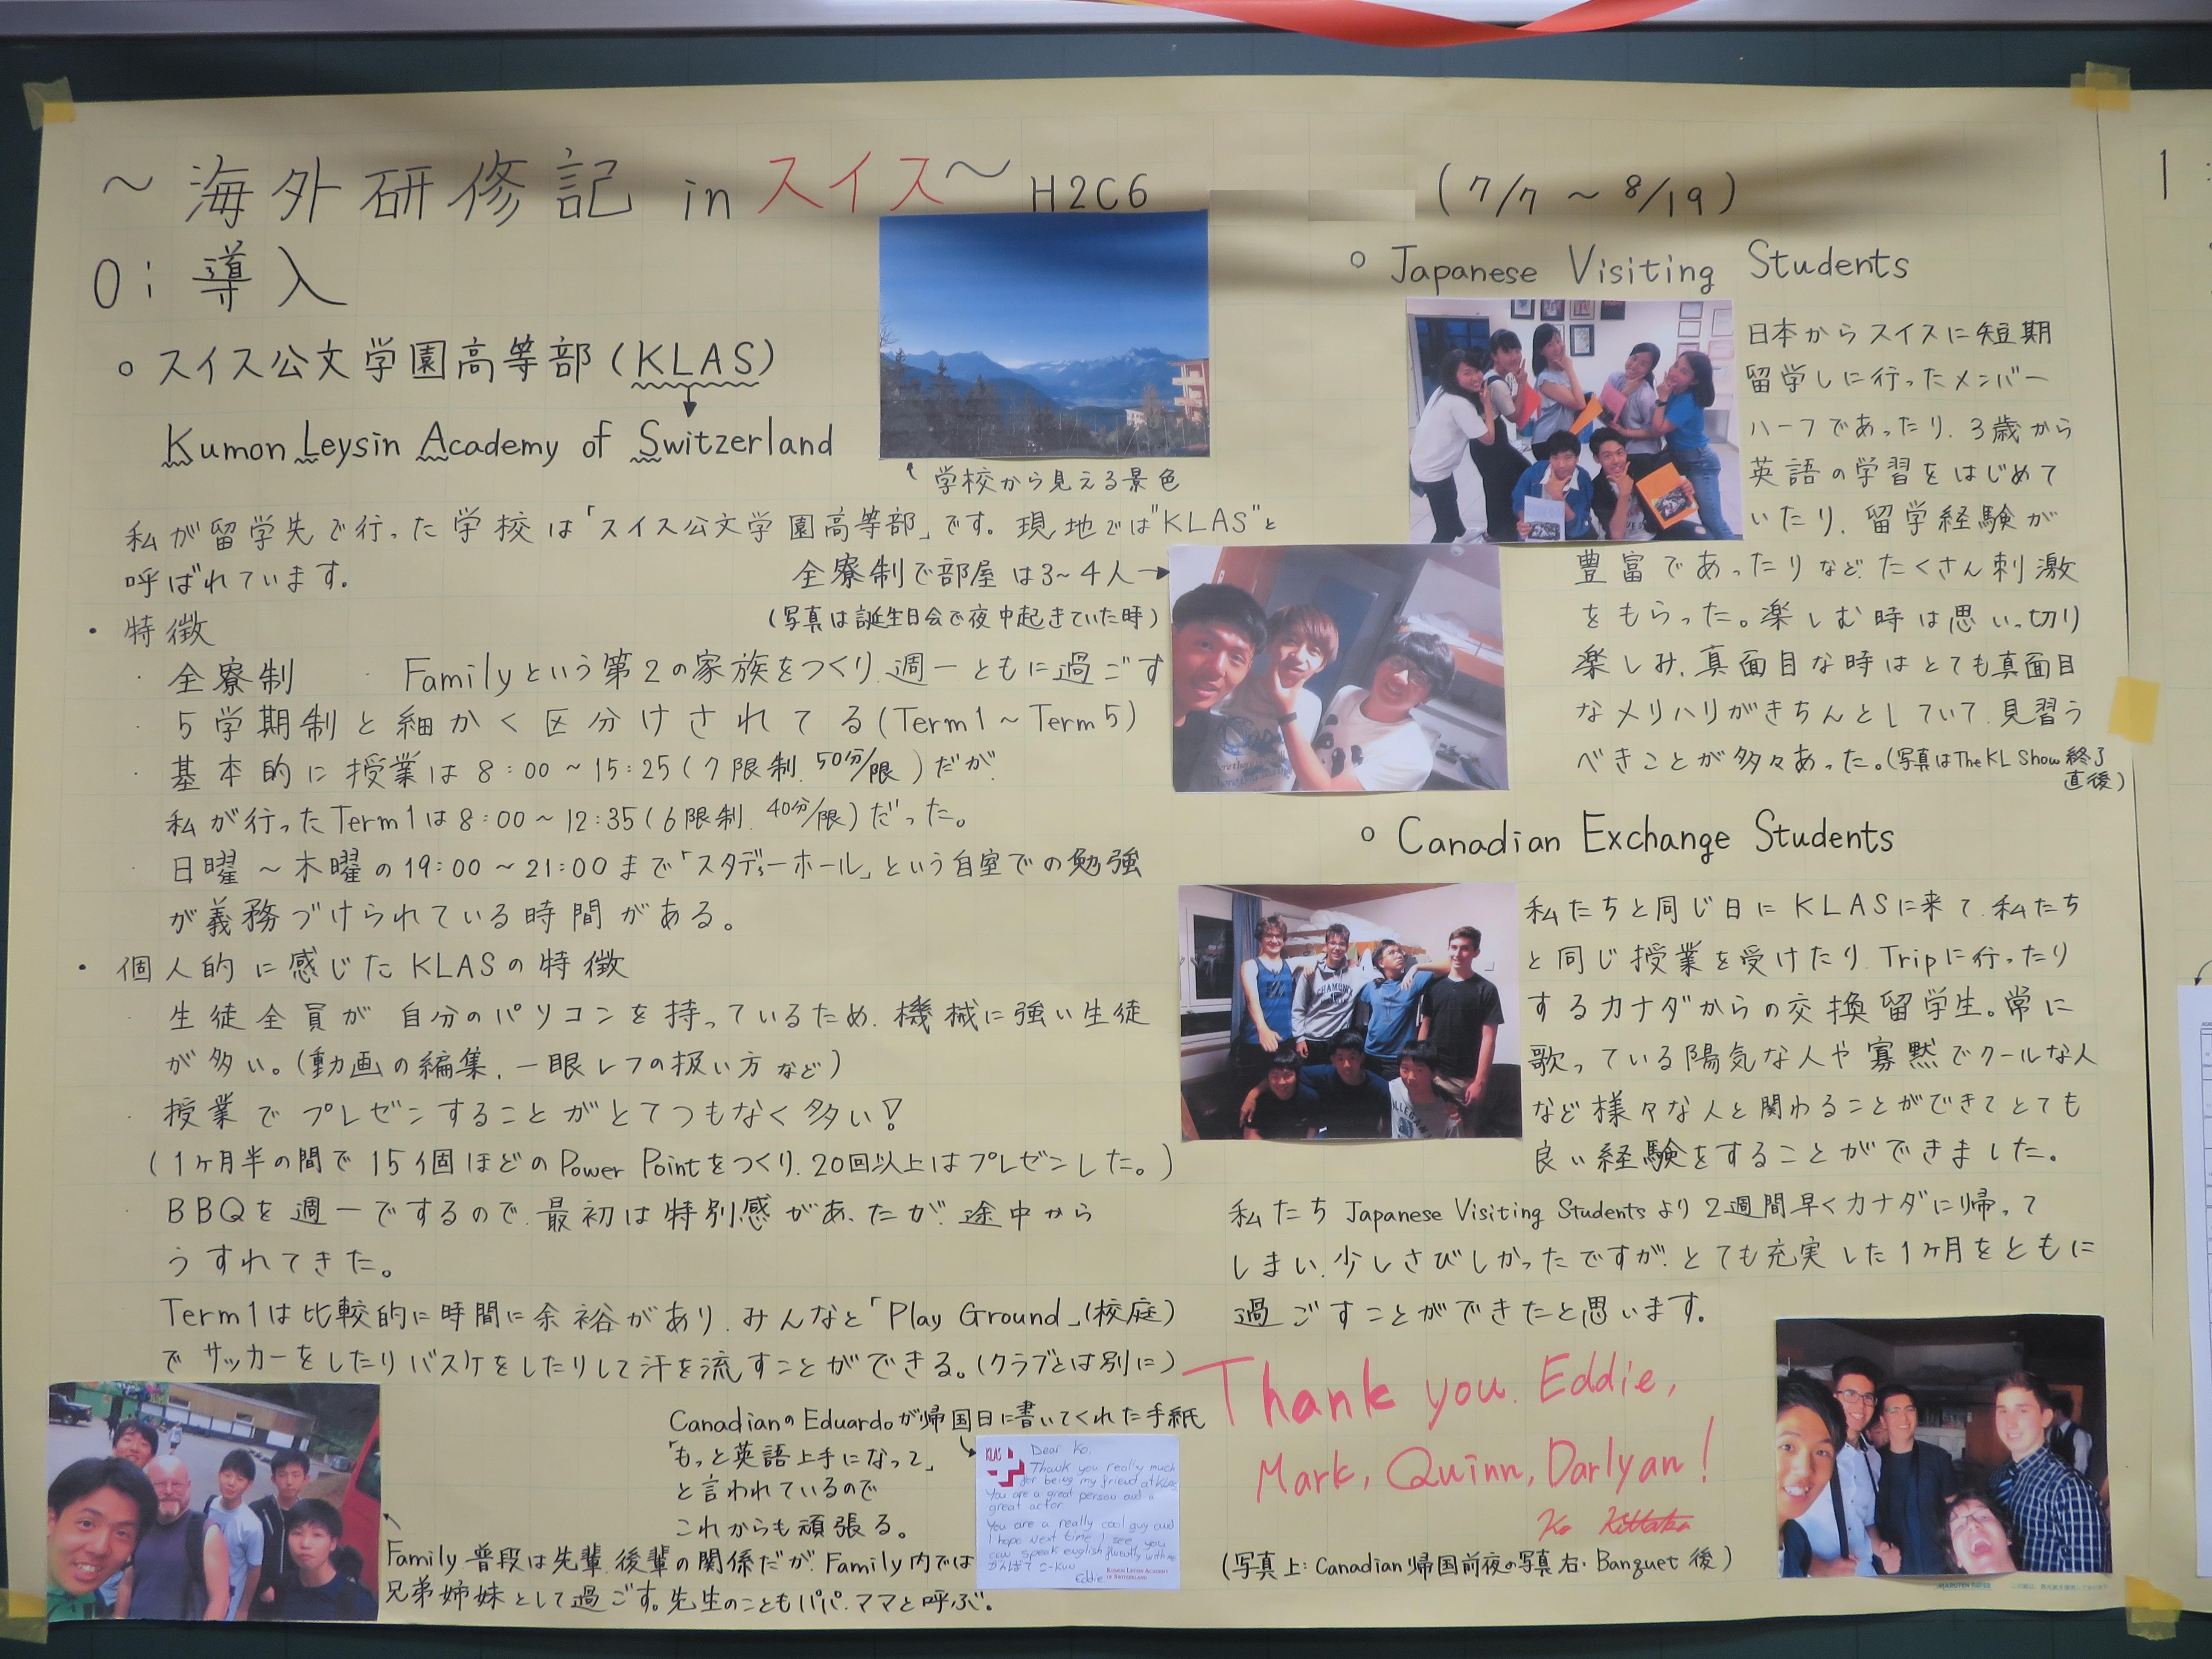 ～海外研修記 in スイス～ H2C6 (7/7 ～ 8/19)
0: 導入
○ スイス公文学園高等部 (KLAS)
Kumon Leysin Academy of Switzerland
学校から見える景色
私が留学先で行った学校は「スイス公文学園高等部」です。現地では"KLAS"と
呼ばれています。
全寮制で部屋は3~4人→
(写真は誕生日会で夜中起きていた時)
・特徴
・全寮制 ・Familyという第2の家族をつくり、週一ともに過ごす
・5学期制と細かく区分けされてる(Term1～Term5)
・基本的に授業は8:00～15:25(7限制、50分/限)だが、
私が行ったTerm1は8:00～12:35(6限制、40分/限)だった。
・日曜～木曜の19:00～21:00まで「スタディーホール」という自室での勉強
が義務づけられている時間がある。
・個人的に感じたKLASの特徴
・生徒全員が自分のパソコンを持っているため、機械に強い生徒
が多い。(動画の編集、一眼レフの扱い方など)
・授業でプレゼンすることがとてつもなく多い!
(1ヶ月半の間で15個ほどのPower Pointをつくり、20回以上はプレゼンした。)
・BBQを週一でするので、最初は特別感があったが、途中から
うすれてきた。
・Term1は比較的に時間に余裕があり、みんなと「Play Ground」(校庭)
でサッカーをしたりバスケをしたりして汗を流すことができる。(クラブとは別に)
CanadianのEduardoが帰国日に書いてくれた手紙
「もっと英語上手になって」
と言われているので
これからも頑張る。
KLAS
Dear Ko.
Thank you really much
for being my friend at KLAS
You are a great person and a
great actor
You are a really cool guy and
I hope next time I see you
can speak english fluently with me
がんばて
Eddie
KUMON LEYSIN ACADEMY
OF SWITZERLAND
Family 普段は先輩、後輩の関係だが、Family内では
兄弟姉妹として過ごす。先生のこともパパ、ママと呼ぶ。
○ Japanese Visiting Students
日本からスイスに短期
留学しに行ったメンバー
ハーフであったり、3歳から
英語の学習をはじめて
いたり、留学経験が
豊富であったりなど、たくさん刺激
をもらった。楽しむ時は思いっ切り
楽しみ、真面目な時はとても真面目
なメリハリがきちんとしていて、見習う
べきことが多々あった。(写真はThe KL Show終了
直後)
○ Canadian Exchange Students
私たちと同じ日にKLASに来て、私たち
と同じ授業を受けたり、Tripに行ったり
するカナダからの交換留学生。常に
歌っている陽気な人や寡黙でクールな人
など様々な人と関わることができてとても
良い経験をすることができました。
私たちJapanese Visiting Studentsより2週間早くカナダに帰って
しまい、少しさびしかったですが、とても充実した1ヶ月をともに
過ごすことができたと思います。
Thank you. Eddie,
Mark, Quinn, Darlyan!
(写真上:Canadian帰国前夜の写真 右:Banquet後)
MARUTEN PAPER